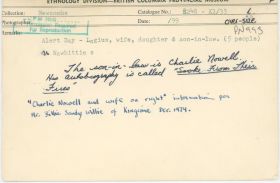 ETHNOLOGY DIVISION—BRITISH COLUMBIA PROVINCIAL MUSEUM
Collection: Newcombe Catalogue No.:
Date: /99 ORI-SIZE
PN 993
For Reproduction
Alert Bay - Lagius, wife, daughter & son-in-law. (5 people)
The son-in-law is Charlie Nowell
His autobiography is called "Smoke From Their
Fires"
"Charlie Nowell and wife on right" information per
Mr. Silas Sandy Willie of Kingcome Dec. 1974.